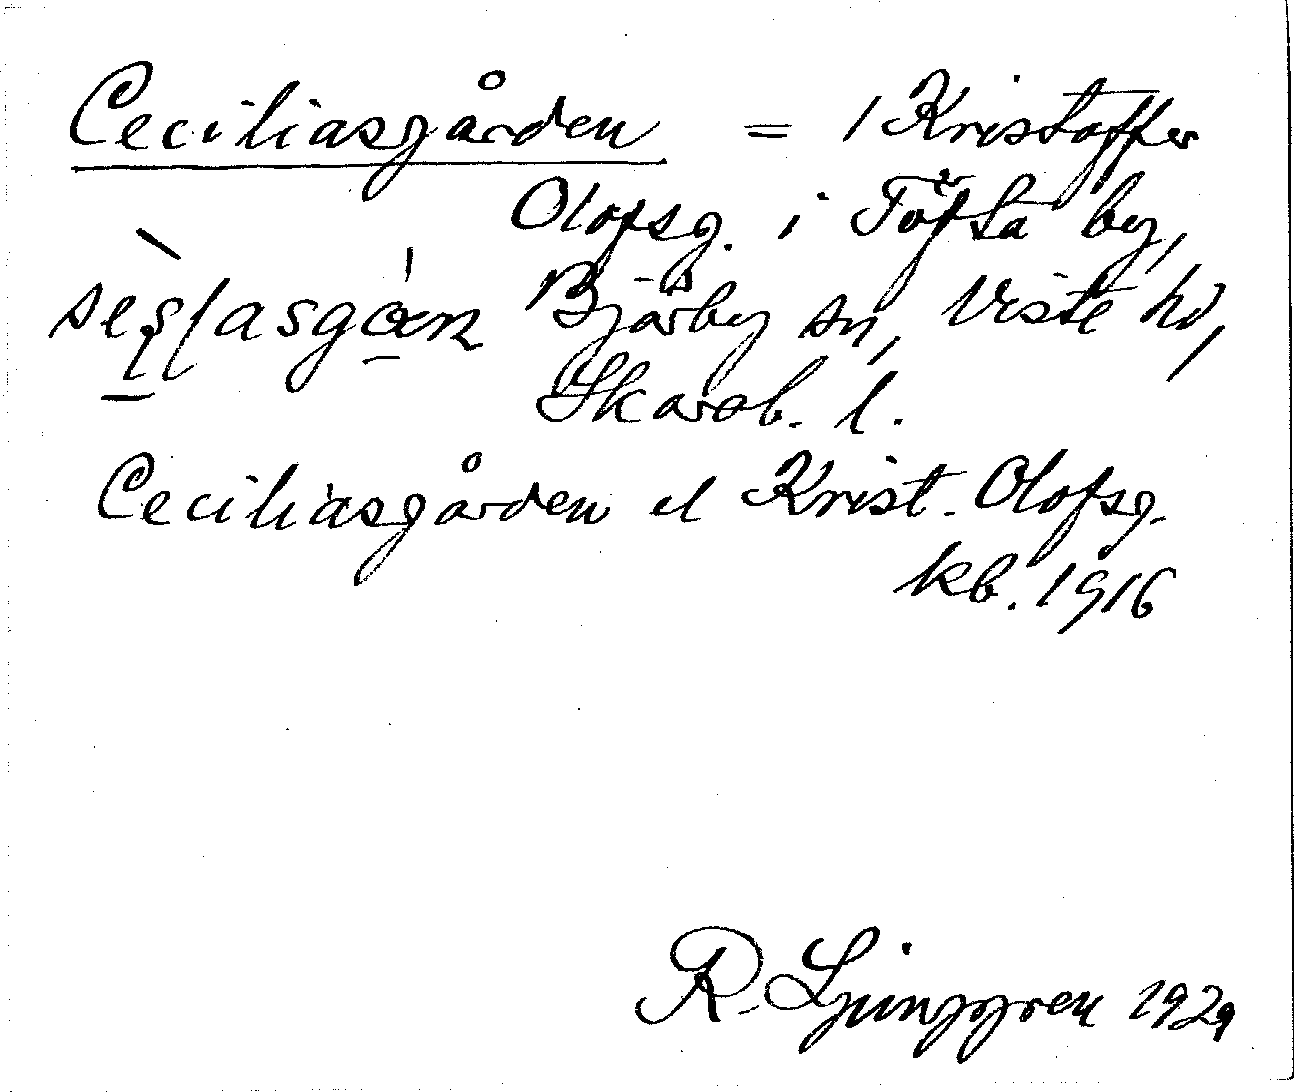 Ceciliasgården = 1 Kristoffer
Olofsg. i Töfta by,
Bjärby sn, Viste hd,
Skarab. l.
Ceciliasgården el Krist. Olofsg.
kb. 1916
R. Ljunggren 1929